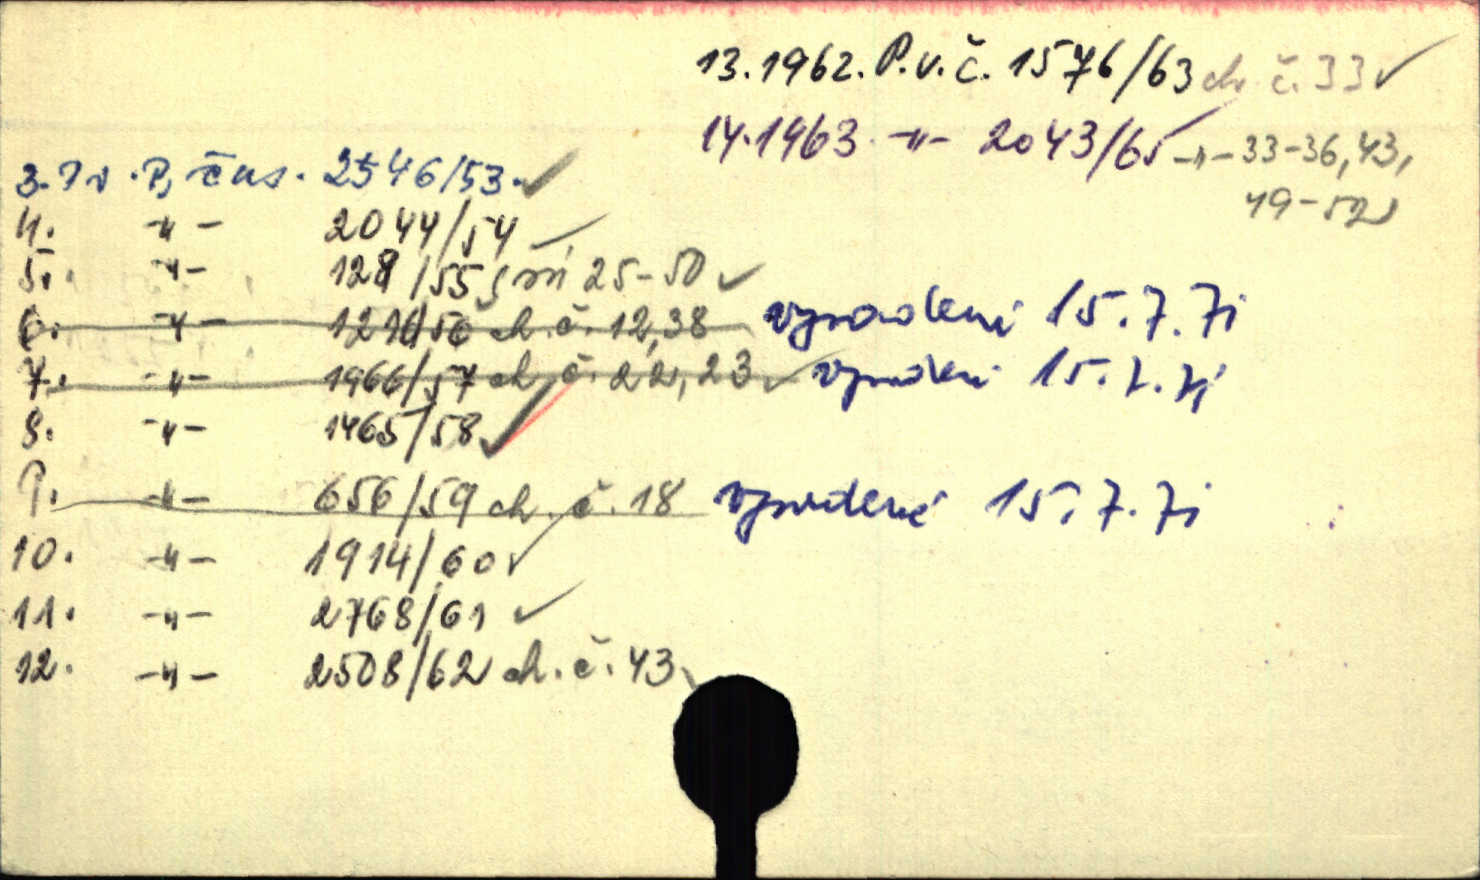 13.1962. P.v.č. 1576/63 ch. č. 33 ✓
14.1963. -"- 2043/65 -"- 33-36, 43,
49-52
3. P, čas. 2546/53. ✓
4. -"- 2044/54 ✓
5. -"- 128/55 25-50 ✓
6. -"- 1216/56 ch. č. 12,38 vyradené 15.7.71
7. -"- 1966/57 ch. č. 22, 23 ✓ vyradené 15.7.71
8. -"- 1465/58 ✓
9. -"- 656/59 ch. č. 18 vyradené 15.7.71
10. -"- 1914/60 ✓
11. -"- 2768/61 ✓
12. -"- 2508/62 ch. č. 43